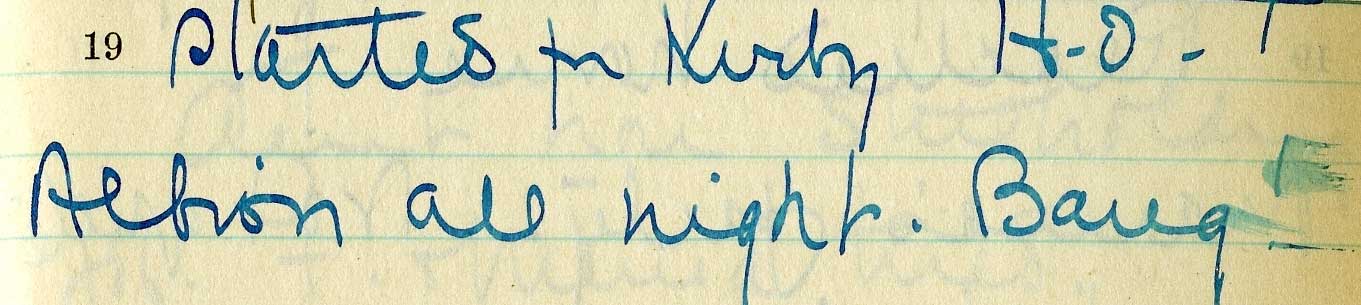 19 Started for Kirby H.O. - T
Albion all night. Banq -